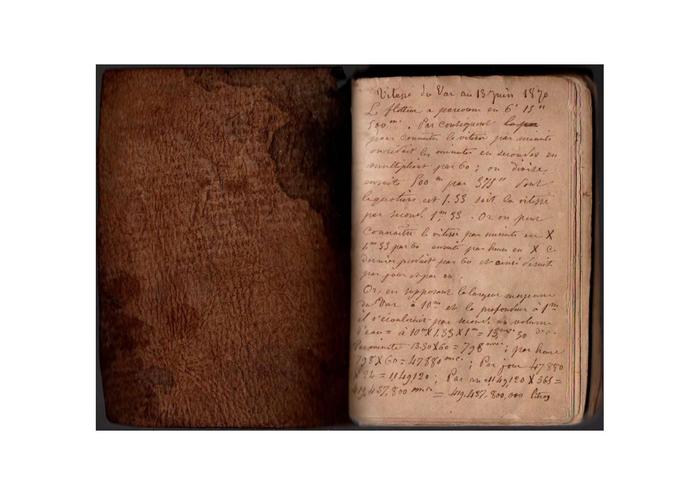 Vitesse du Var au 13 juin 1870
Le flotteur a parcouru en 6' 15"
500 m. Par conséquent
pour connaitre la vitesse par minute
on réduit les minutes en secondes en
multipliant par 60 ; on divise
ensuite 500 m par 375" dont
le quotient est 1.33 soit la vitesse
par seconde 1 m 33. Or on peut
connaitre la vitesse par minute en X
1 m 33 par 60 ensuite par heure en X ce
dernier produit par 60 et ainsi de suite
par jour et par an.
Or, en supposant la largeur moyenne
du Var à 10 m et la profondeur à 1 m
il s'écoulerait par seconde un volume
d'eau = à 10 m X 1.33 X 1 m = 13 30
Par minute 13.30 X 60 = 798 ; par heure
798 X 60 = 47880 ; Par jour 47880
X 24 = 1149120 ; Par an 1149120 X 365 =
419,437,800 = 419.437.800,000 litres